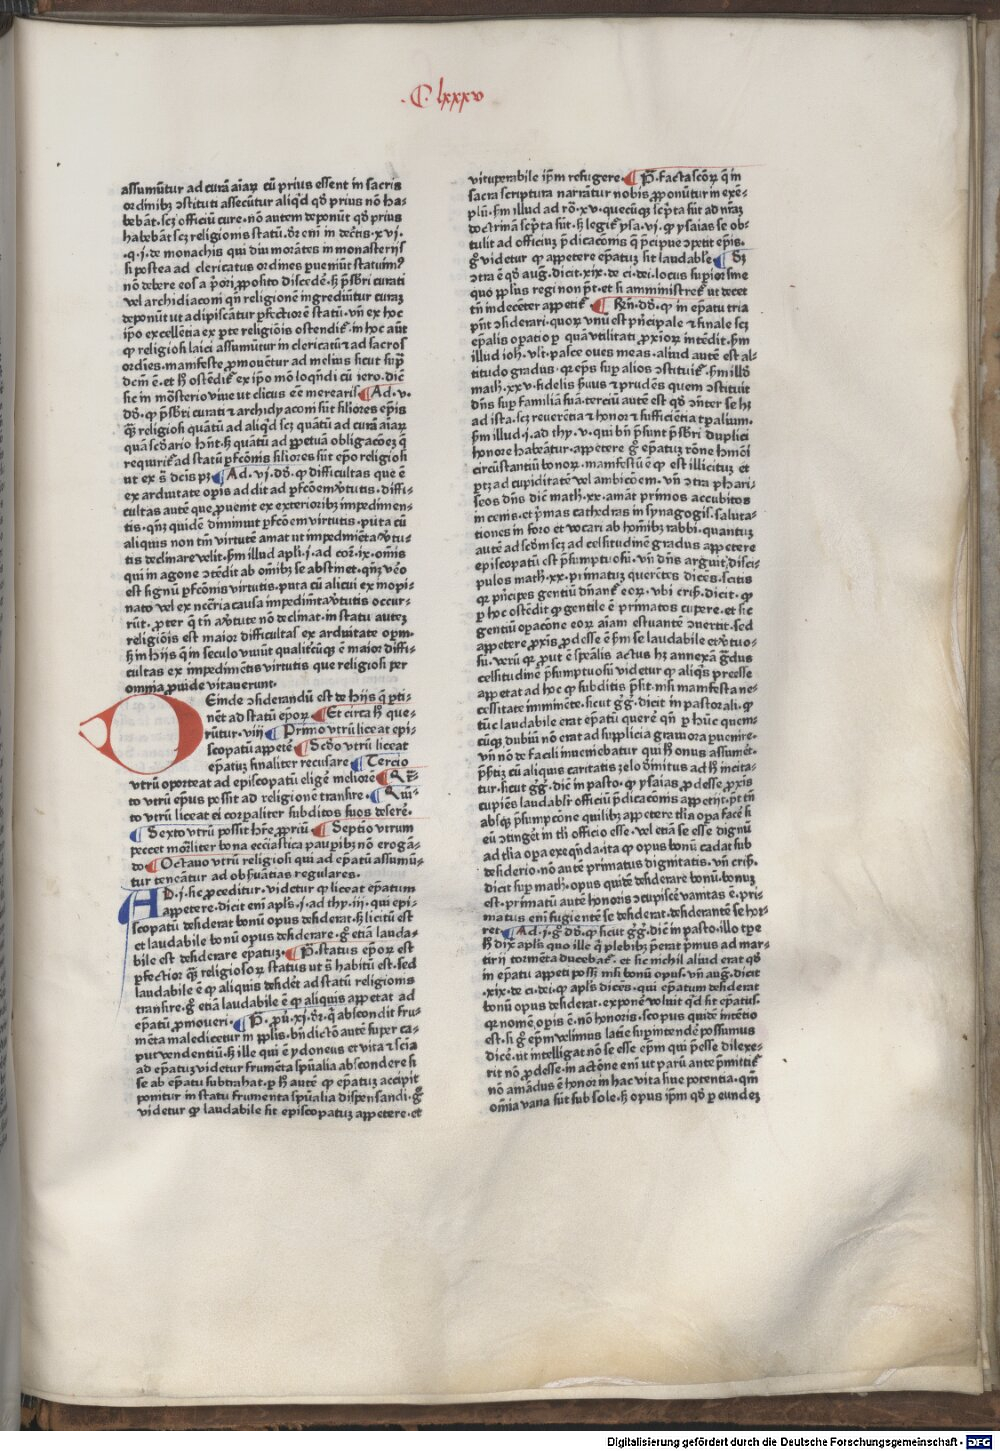 .C. lxxxv
assumūtur ad curā aīaꝝ cū prius essent in sacris
ordinibꝫ ꝯstituti assecūtur aliq̇d qd̓ prius nō ha-
bebāt. scꝫ officiū cure. nō autem deponūt qd̓ prius
habebāt scꝫ religionis statū. dr̄ em̄ in decr̄tis. xvj.
.q. j. de monachis qui diu morātes in monasterijs
si postea ad clericatus ordines ꝑueniūt statuim⁹
nō debere eos a p̄ori ꝓposito discedē. ꜧ p̄sbr̄i curati
vel archidiaconi qn̄ religionē ingrediūtur curaꝫ
deponūt ut adipiscātur ꝑfectiorē statū. vn̄ ex hoc
ip̄o excellētia ex ꝑte religiōis ostendiꝉ. in hoc aūt
ꝙ religiosi laici assumūtur in clericatū ⁊ ad sacros
ordīes. manifeste ꝓmouētur ad melius sicut supͣ
dc̄m ē. et ħ ostēdiꝉ ex ip̄o mō loq̄ndi cū iero. dic̄
sic in mōsterio viue ut clicus eē merearis ¶ Ad. v.
dd̓. ꝙ p̄sbr̄i curati ⁊ archidyaconi sūt sil̓iores ep̄is
qͣꝫ religiosi quātū ad aliq̇d scꝫ quātū ad curā aīaꝝ
quā scd̓ario hn̄t. ꜧ quātū ad ꝑpetuā obligacōeꝫ q̄
requiriꝉ ad statū ꝑfcōnis sil̓iores sūt ep̄o religiosi
ut ex sͣ dcīs pꝫ ¶ Ad. vj. dd̓. ꝙ difficultas que ē
ex arduitate opis addit ad ꝑfcōem v̓tutis. diffi-
cultas autē que ꝓuenit ex exterioribꝫ impedimen-
tis. qn̄ꝫ quidē diminuit ꝑfcōem virtutis. puta cū
aliquis non tm̄ virtutē amat ut impedimēta v̓tu-
tis declinare velit. ẜm illud apli. j. ad cor̄. ix. om̄is
qui in agone ꝯtēdit ab om̄ibꝫ se abstinet. qn̄ꝫ v̓o
est signū ꝑfcōnis virtutis. puta cū alicui ex inopi-
nato vel ex nccr̄ia causa impedim̄ta v̓tutis occur-
rūt. ꝓter q̄ tn̄ a v̓tute nō declinat. in statu auteꝫ
religiōis est maior difficultas ex arduitate opꝝ.
ꜧ in hijs q̇ in seculo viuūt qualiꝉcūqꝫ ē maior diffi-
cultas ex impedimētis virtutis que religiosi per
omnia ꝓuide vitauerunt.
DEinde ꝯsiderandū est de hijs q̄ ꝑti-
nēt ad statū ep̄oꝝ ¶ Et circa ħ que-
rūtur. viij ¶ Primo vtrū liceat epi-
scopatū appetē ¶ Scd̓o vtrū liceat
ep̄atuꝫ finaliter recusare ¶ Tercio
vtrū oporteat ad episcopatū eligē meliorē ¶ Qr̄-
to vtrū ep̄us possit ad religionē transire. ¶ Qui-
to vtrū liceat ei corꝑaliter subditos suos deserē.
¶ Sexto vtrū possit hr̄e ꝓpriū ¶ Septīo vtrum
peccet mor̄liter bona ecciastica pauꝑibꝫ nō erogā-
do ¶ Octauo vtrū religiosi qui ad ep̄atū assumū-
tur teneātur ad obẜuātias regulares.
AD. j. sic ꝓceditur. videtur ꝙ liceat ep̄atum
appetere. dicit em̄ apls̄. j. ad thy. iij. qui epi-
scopatū desiderat bonū opus desiderat. ꜧ licitū est
et laudabile bonū opus desiderare. gͦ etiā lauda-
bile est desiderare ep̄atuꝫ. ¶ P̄. status ep̄oꝝ est
ꝑfectior qͣꝫ religiosoꝝ status ut sͣ habitū est. sed
laudabile ē ꝙ aliquis desidēt ad statū religionis
transire. gͦ etiā laudabile ē ꝙ aliquis appetat ad
ep̄atū ꝓmoueri. ¶ P̄. ꝓu̓. xj. dr̄. q̇ abscondit fru-
mēta maledicetur in ppl̓is. bn̄dictō autē super ca-
put vendentiū. ꜧ ille qui ē ydoneus et vita ⁊ sc̄ia
ad ep̄atuꝫ videtur frumēta sp̄ualia abscondere si
se ab ep̄atu subtrahat. ꝑ ħ autē ꝙ ep̄atuꝫ accipit
ponitur in statu frumenta sp̄ualia dispensandi. gͦ
videtur ꝙ laudabile sit episcopatuꝫ appetere. et
vituperabile ip̄m refugere ¶ P̄. facta sc̄oꝝ q̄ in
sacra scriptura narrātur nobis ꝓponūtur in exē-
plū. ẜm illud ad ro̅. xv. quecūqꝫ sc̄pta sūt ad nr̄aꝫ
doctrinā sc̄pta sūt. ꜧ legiꝉ ysa. vj. ꝙ ysaias se ob-
tulit ad officiuꝫ p̄dicacōnis q̄ p̄cipue ꝯpetit ep̄is.
gͦ videtur ꝙ appetere ep̄atuꝫ sit laudabl̓e ¶ Sꝫ
ꝯtra ē qd̓ aug̅. dicit. xix. de ci. dei. locus suꝑior sine
quo ppl̓us regi non pt̄. et si amministreꝉ ut decet
tn̄ indecēter appetiꝉ ¶ Rn̄. dd̓. ꝙ in ep̄atu tria
p̄nt ꝯsiderari. quoꝝ vnū est p̄ncipale ⁊ finale scꝫ
ep̄alis oꝑatio ꝑ quā vtilitati ꝓxioꝝ intēdit. ẜm
illud ioh̅. vlt̄. pasce oues meas. aliud autē est al-
titudo gradus. qꝛ ep̄s suꝑ alios ꝯstituiꝉ. ẜm illd̓
math̅. xxv. fidelis ẜuus ⁊ prudēs quem ꝯstituit
dn̄s suꝑ familiā suā. terciū autē est qd̓ ꝯn̄ter se hꝫ
ad ista. scꝫ reuerētia ⁊ honor ⁊ sufficiētia tꝑalium.
ẜm illud. j. ad thy. v. qui bn̄ p̄sunt p̄sbr̄i duplici
honore habeātur. appetere gͦ ep̄atuꝫ rōne hm̄oi
circūstantiū bonoꝝ. manifestū ē ꝙ est illicituꝫ et
ꝑtꝫ ad cupiditatē vel ambicōem. vn̄ ꝯtra phari-
seos dn̄s dic̄ math̅. xx. amāt primos accubitos
in cenis. et p̄mas cathedras in synagogis. saluta-
tiones in foro et vocari ab hom̄ibꝫ rabbi. quantuꝫ
autē ad scd̓m scꝫ ad celsitudinē gradus appetere
episcopatū est p̄sumptuosū. vn̄ dn̄s arguit disci-
pulos math̅. xx. primatuꝫ querētes dicēs. scitis
qꝛ p̄ncipes gentiū dn̄anꝉ eoꝝ. vbi cris̅. dicit. ꝙ
ꝑ hoc ostēdit ꝙ gentile ē primatos cupere. et sic
gentiū opacōne eoꝝ aīam estuantē ꝯuertit. sed
appetere ꝓxīs ꝓdesse ē ẜm se laudabile et v̓tuo-
sū. verū qꝛ ꝓut ē sp̄ealis actus hꝫ annexā gͣdus
celsitudinē p̄sumptuosū videtur ꝙ aliq̇s preesse
appetat ad hoc ꝙ subditis p̄sit. nisi manifesta ne-
cessitate imminēte. sicut gg̅. dicit in pastorali. ꝙ
tūc laudabile erat ep̄atū querē qn̄ ꝑ hūc quem-
cūqꝫ dubiū nō erat ad supplicia grauiora ꝑuenire.
vn̄ nō de facili inueniebatur qui ħ onus assumēt.
p̄ẜtiꝫ cū aliquis caritatis zelo d̓initus ad ħ incita-
tur. sicut gg̅. dic̄ in pasto. ꝙ ysaias ꝓdesse ꝓxīs
cupiēs laudabl̓r officiū p̄dicacōnis appetijt. pt̄ tn̄
absqꝫ p̄sumpcōne quilibꝫ appetere tl̓ia oꝑa facē si
eū ꝯtingēt in tl̓i officio esse. vel etiā se esse dignū
ad tl̓ia oꝑa exeq̄nda. ita ꝙ opus bonū cadat sub
desiderio. nō autē primatus dignitatis. vn̄ cris̅.
dicit suꝑ math̅. opus quidē desiderare bonū. bonuꝫ
est. primatū autē honoris ꝯcupiscē vanitas ē. pri-
matus em̄ fugientē se desiderat. desiderantē se hor-
ret. ¶ Ad. j. gͦ dd̓. ꝙ sicut gg̅. dic̄ in pasto. illo tꝑe
ħ dix̄ apls̄ quo ille q̇ plebibꝫ p̄erat p̄mus ad mar-
tirij tormēta ducebaꝉ. et sic nichil aliud erat qd̓
in ep̄atu appeti possꝫ nisi bonū opus. vn̄ aug̅. dicit
.xix. de ci. dei. ꝙ apls̄ dicēs. qui ep̄atum desiderat
bonū opus desiderat. exponē voluit q̇d sit ep̄atus.
qꝛ nomē opis ē. nō honoris. scopus quidē intētio
est. si gͦ ep̄m velimus latīe suꝑintendē possumus
dicē. ut intelligat nō se esse ep̄m qui p̄esse dilexe-
rit nō ꝓdesse. in actōne em̄ ut ꝑarū ante p̄mittiꝉ
nō amādus ē honor in hac vita siue potentia. qm̄
om̄ia vana sūt sub sole. ꜧ opus ip̄m qd̓ ꝑ eundeꝫ
Digitalisierung gefördert durch die Deutsche Forschungsgemeinschaft - DFG